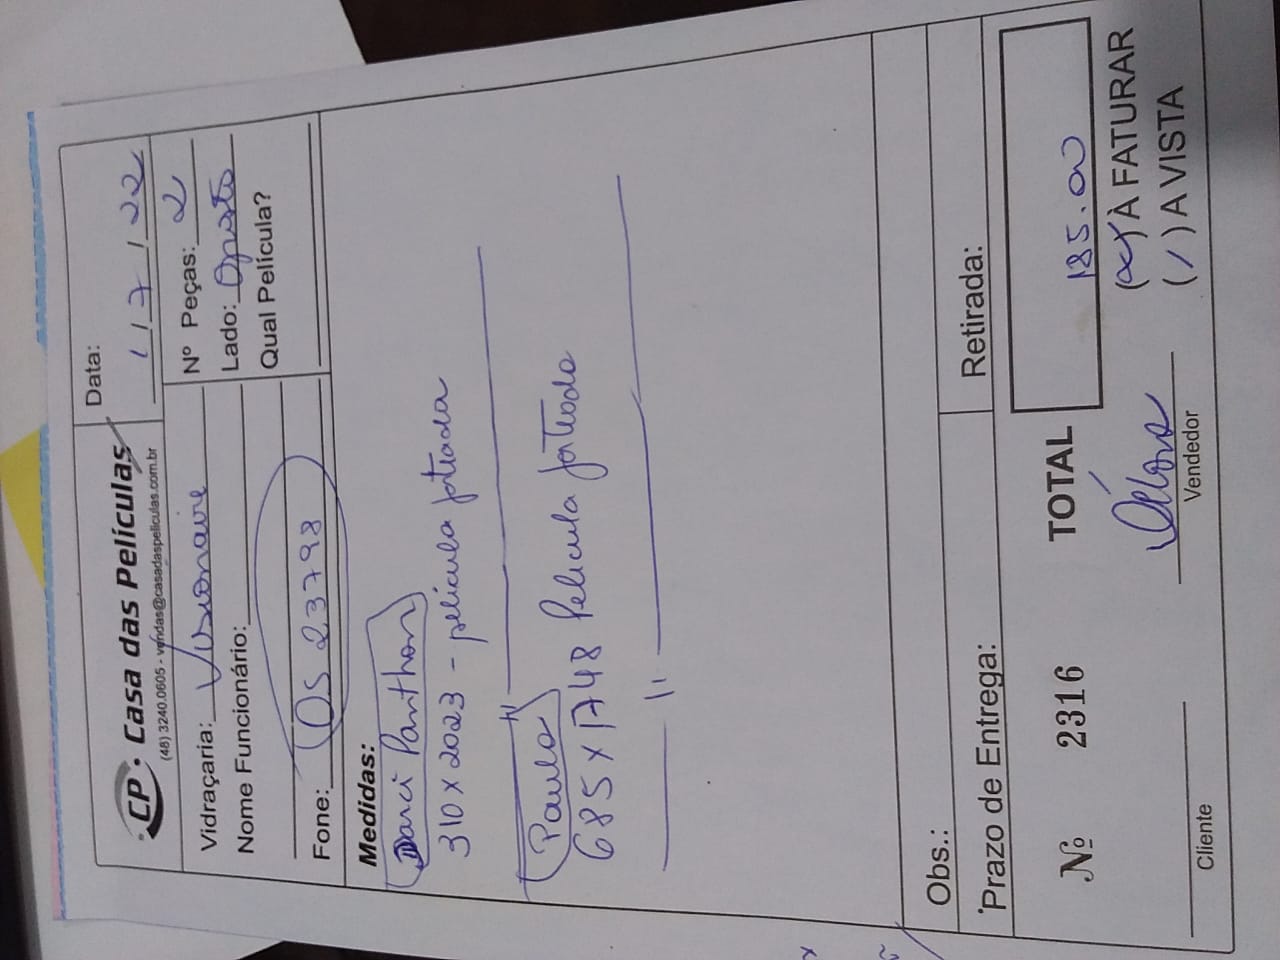 CP. Casa das Películas
(48) 3240.0605 - vendas@casadaspeliculas.com.br
Data:
1 / 7 / 22
Vidraçaria: Visionaire
Nome Funcionário:
Nº Peças: 2
Lado: Oposto
Qual Película?
Fone: OS 23798
Medidas:
Darci Panthon
310 x 2023 - película fosteada
Paulo
685 x 1748 Película fosteado
Obs.:
Prazo de Entrega:
Retirada:
Nº 2316
TOTAL 185.00
(x) À FATURAR
( ) A VISTA
Cliente
Vendedor